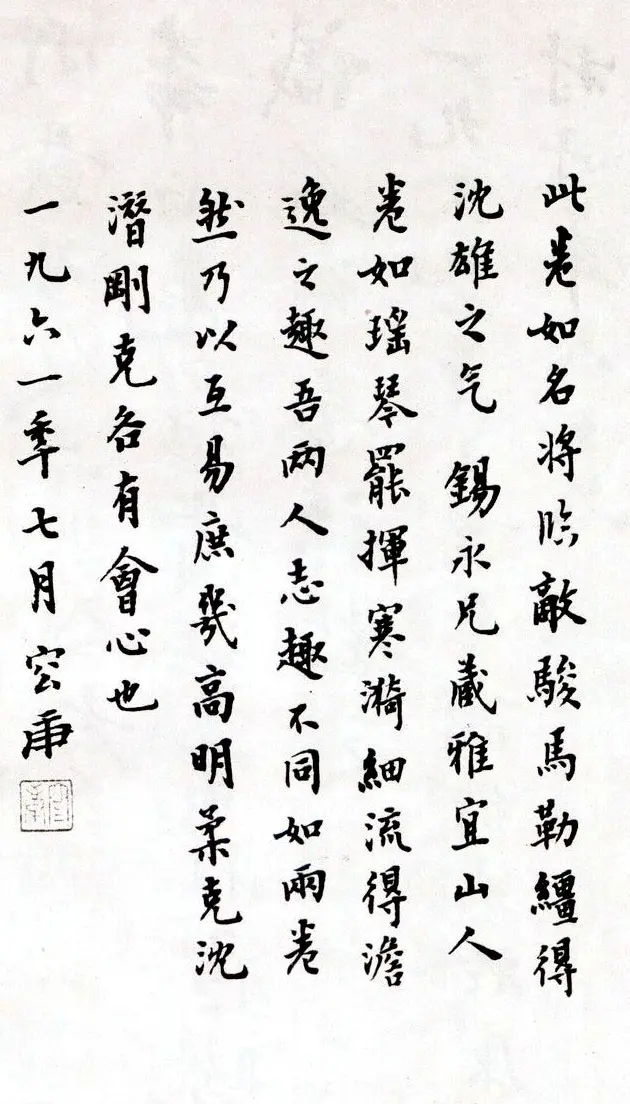 此卷如名將臨敵駿馬勒繮得
沈雄之气 錫永兄藏雅宜山人
卷如瑤琴罷揮寒漪細流得澹
逸之趣吾兩人志趣不同如兩卷
然乃以互易庶幾高明柔克沈
潛剛克各有會心也
一九六一年七月 容庚